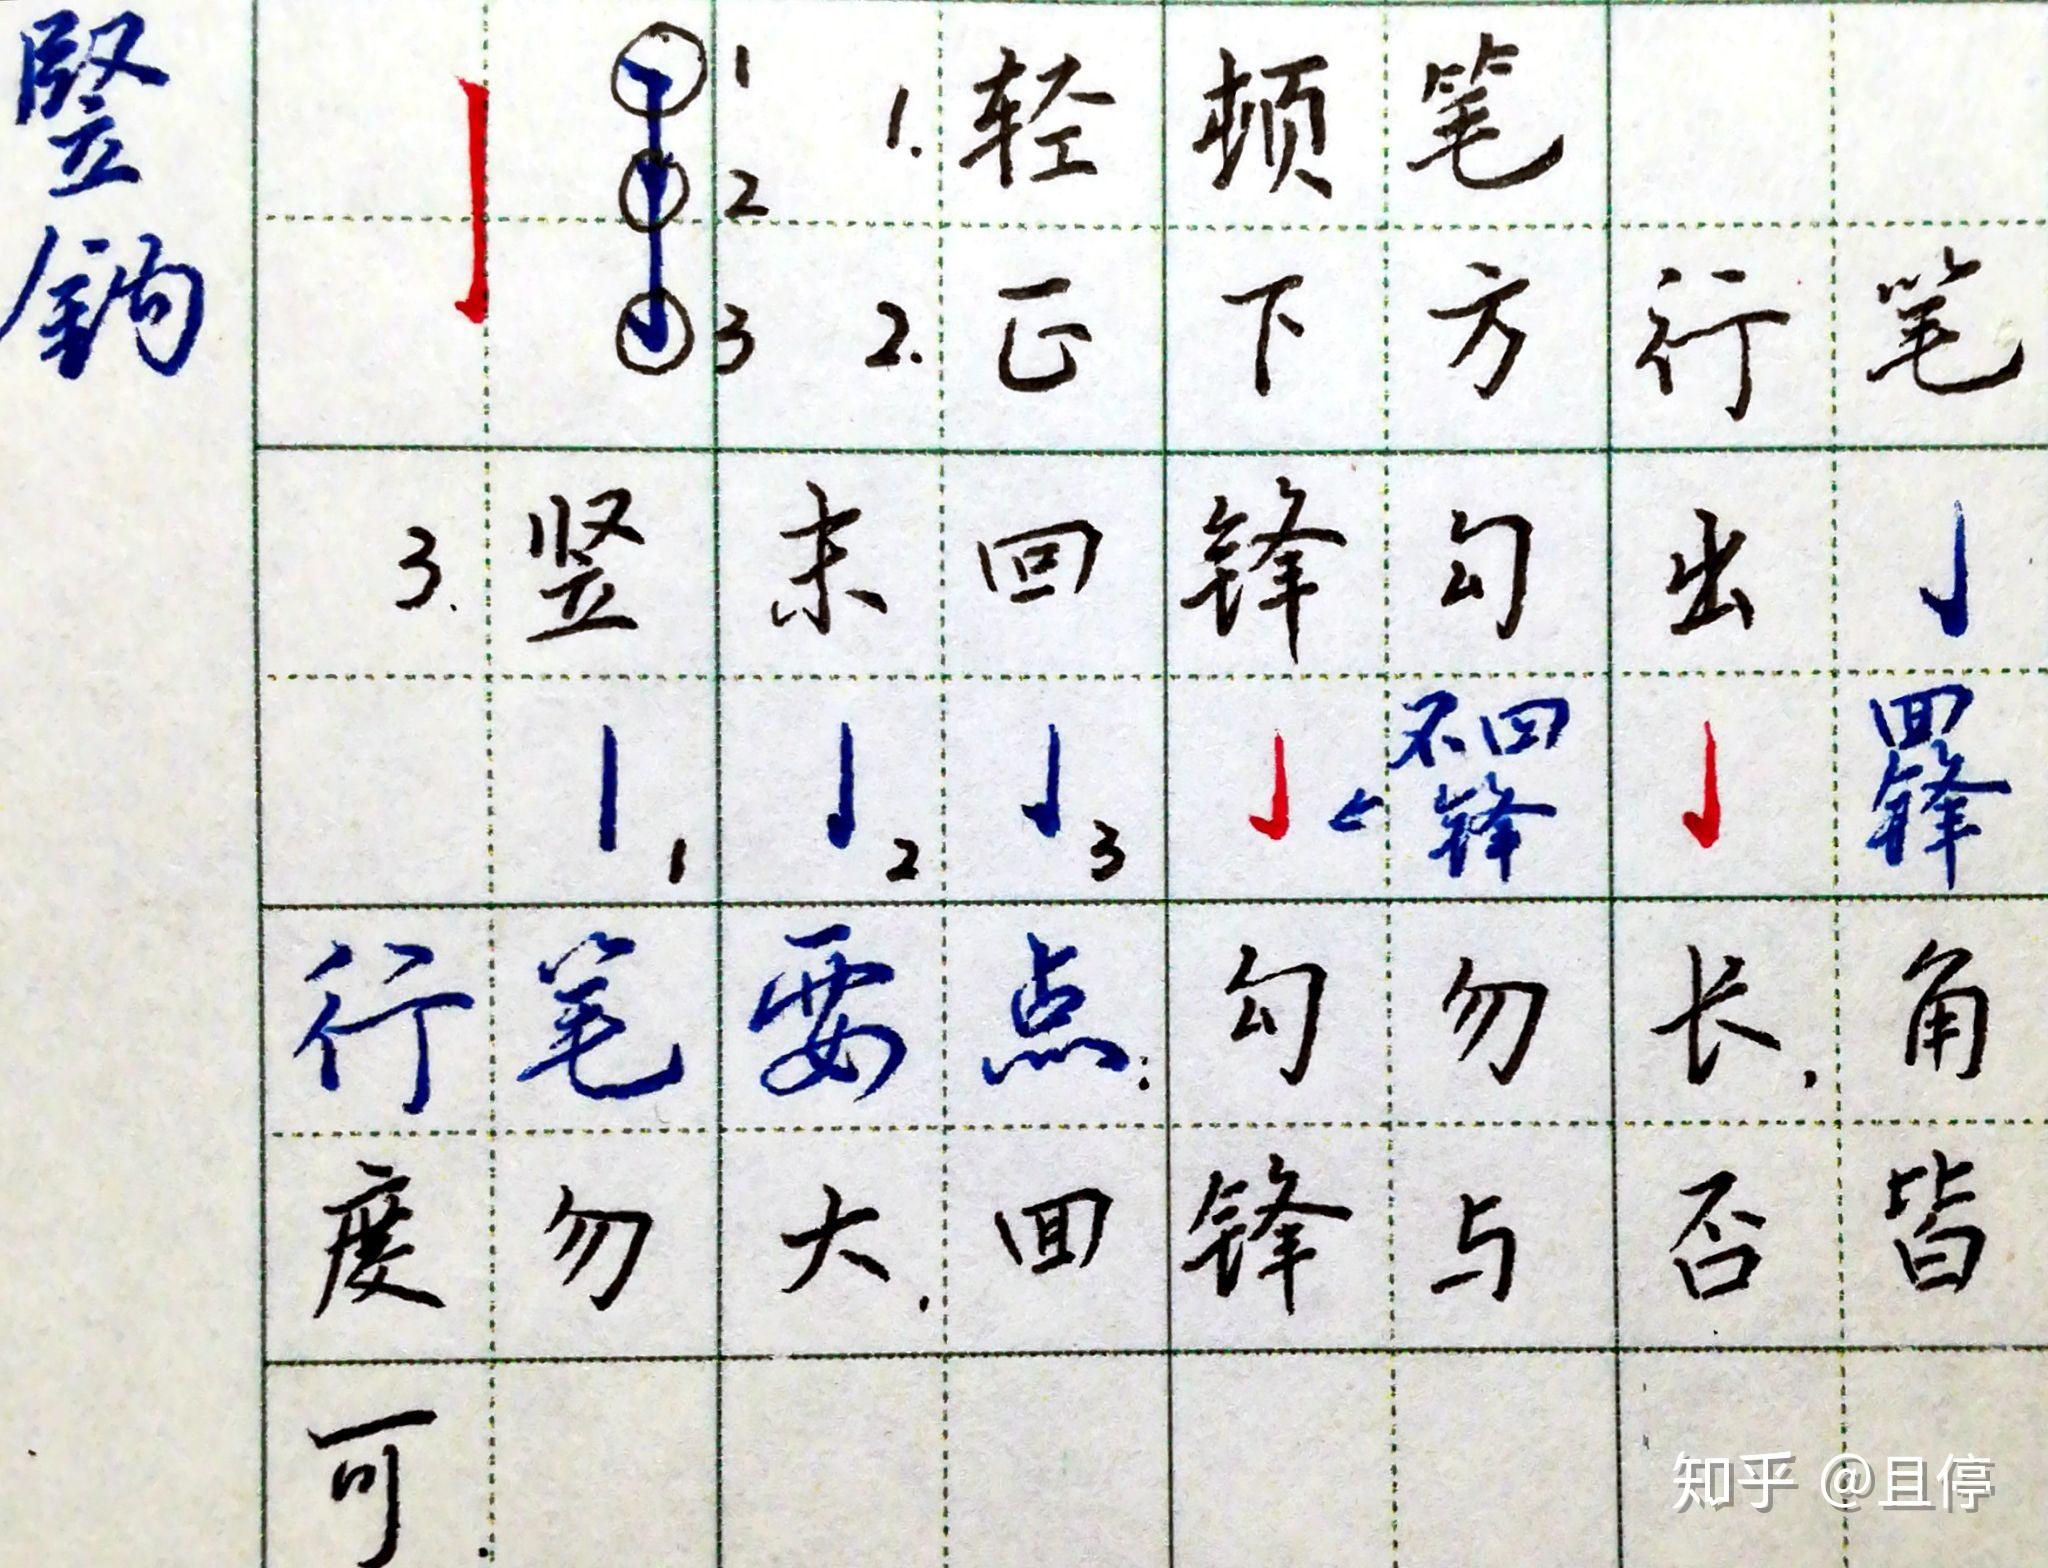 竖鈎
1
1.轻顿笔
2
3
2.正下方行笔
3.竖末回锋勾出
1 2 3 不回锋 回锋
行笔要点:勾勿长,角
度勿大,回锋与否皆
可.
知乎 @且停